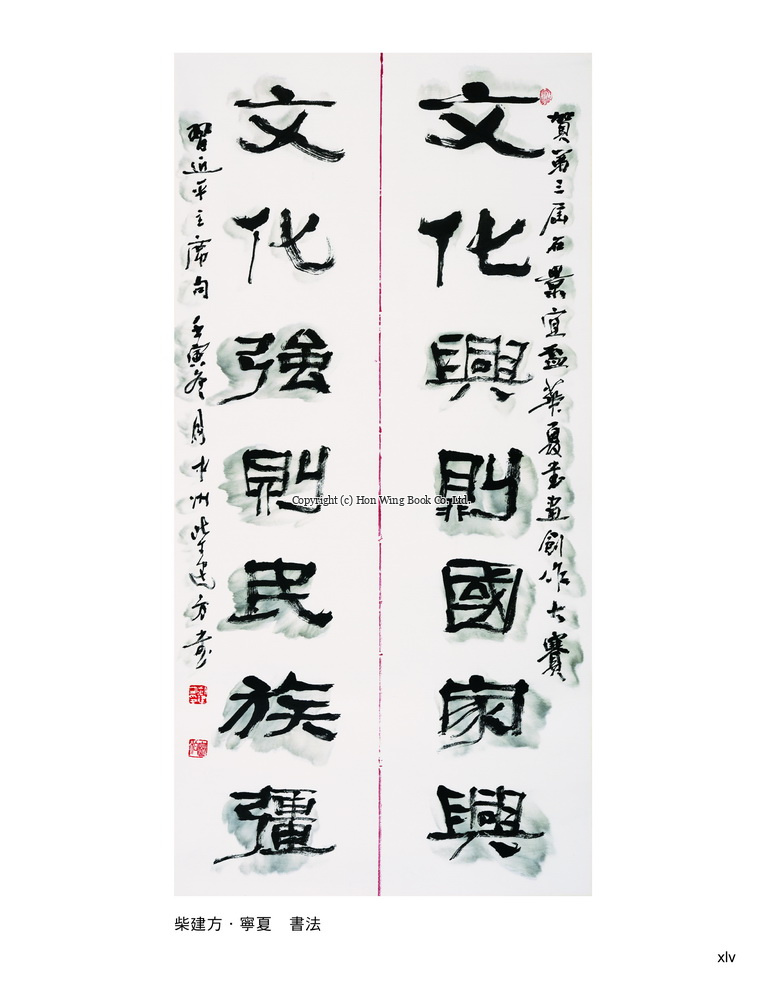 賀第三屆石景宜盃華夏書畫創作大賽
文化興則國家興
文化強則民族彊
習近平主席句 壬寅冬月中州柴建方書
Copyright (c) Hon Wing Book Co. Ltd.
柴建方・寧夏　書法
xlv